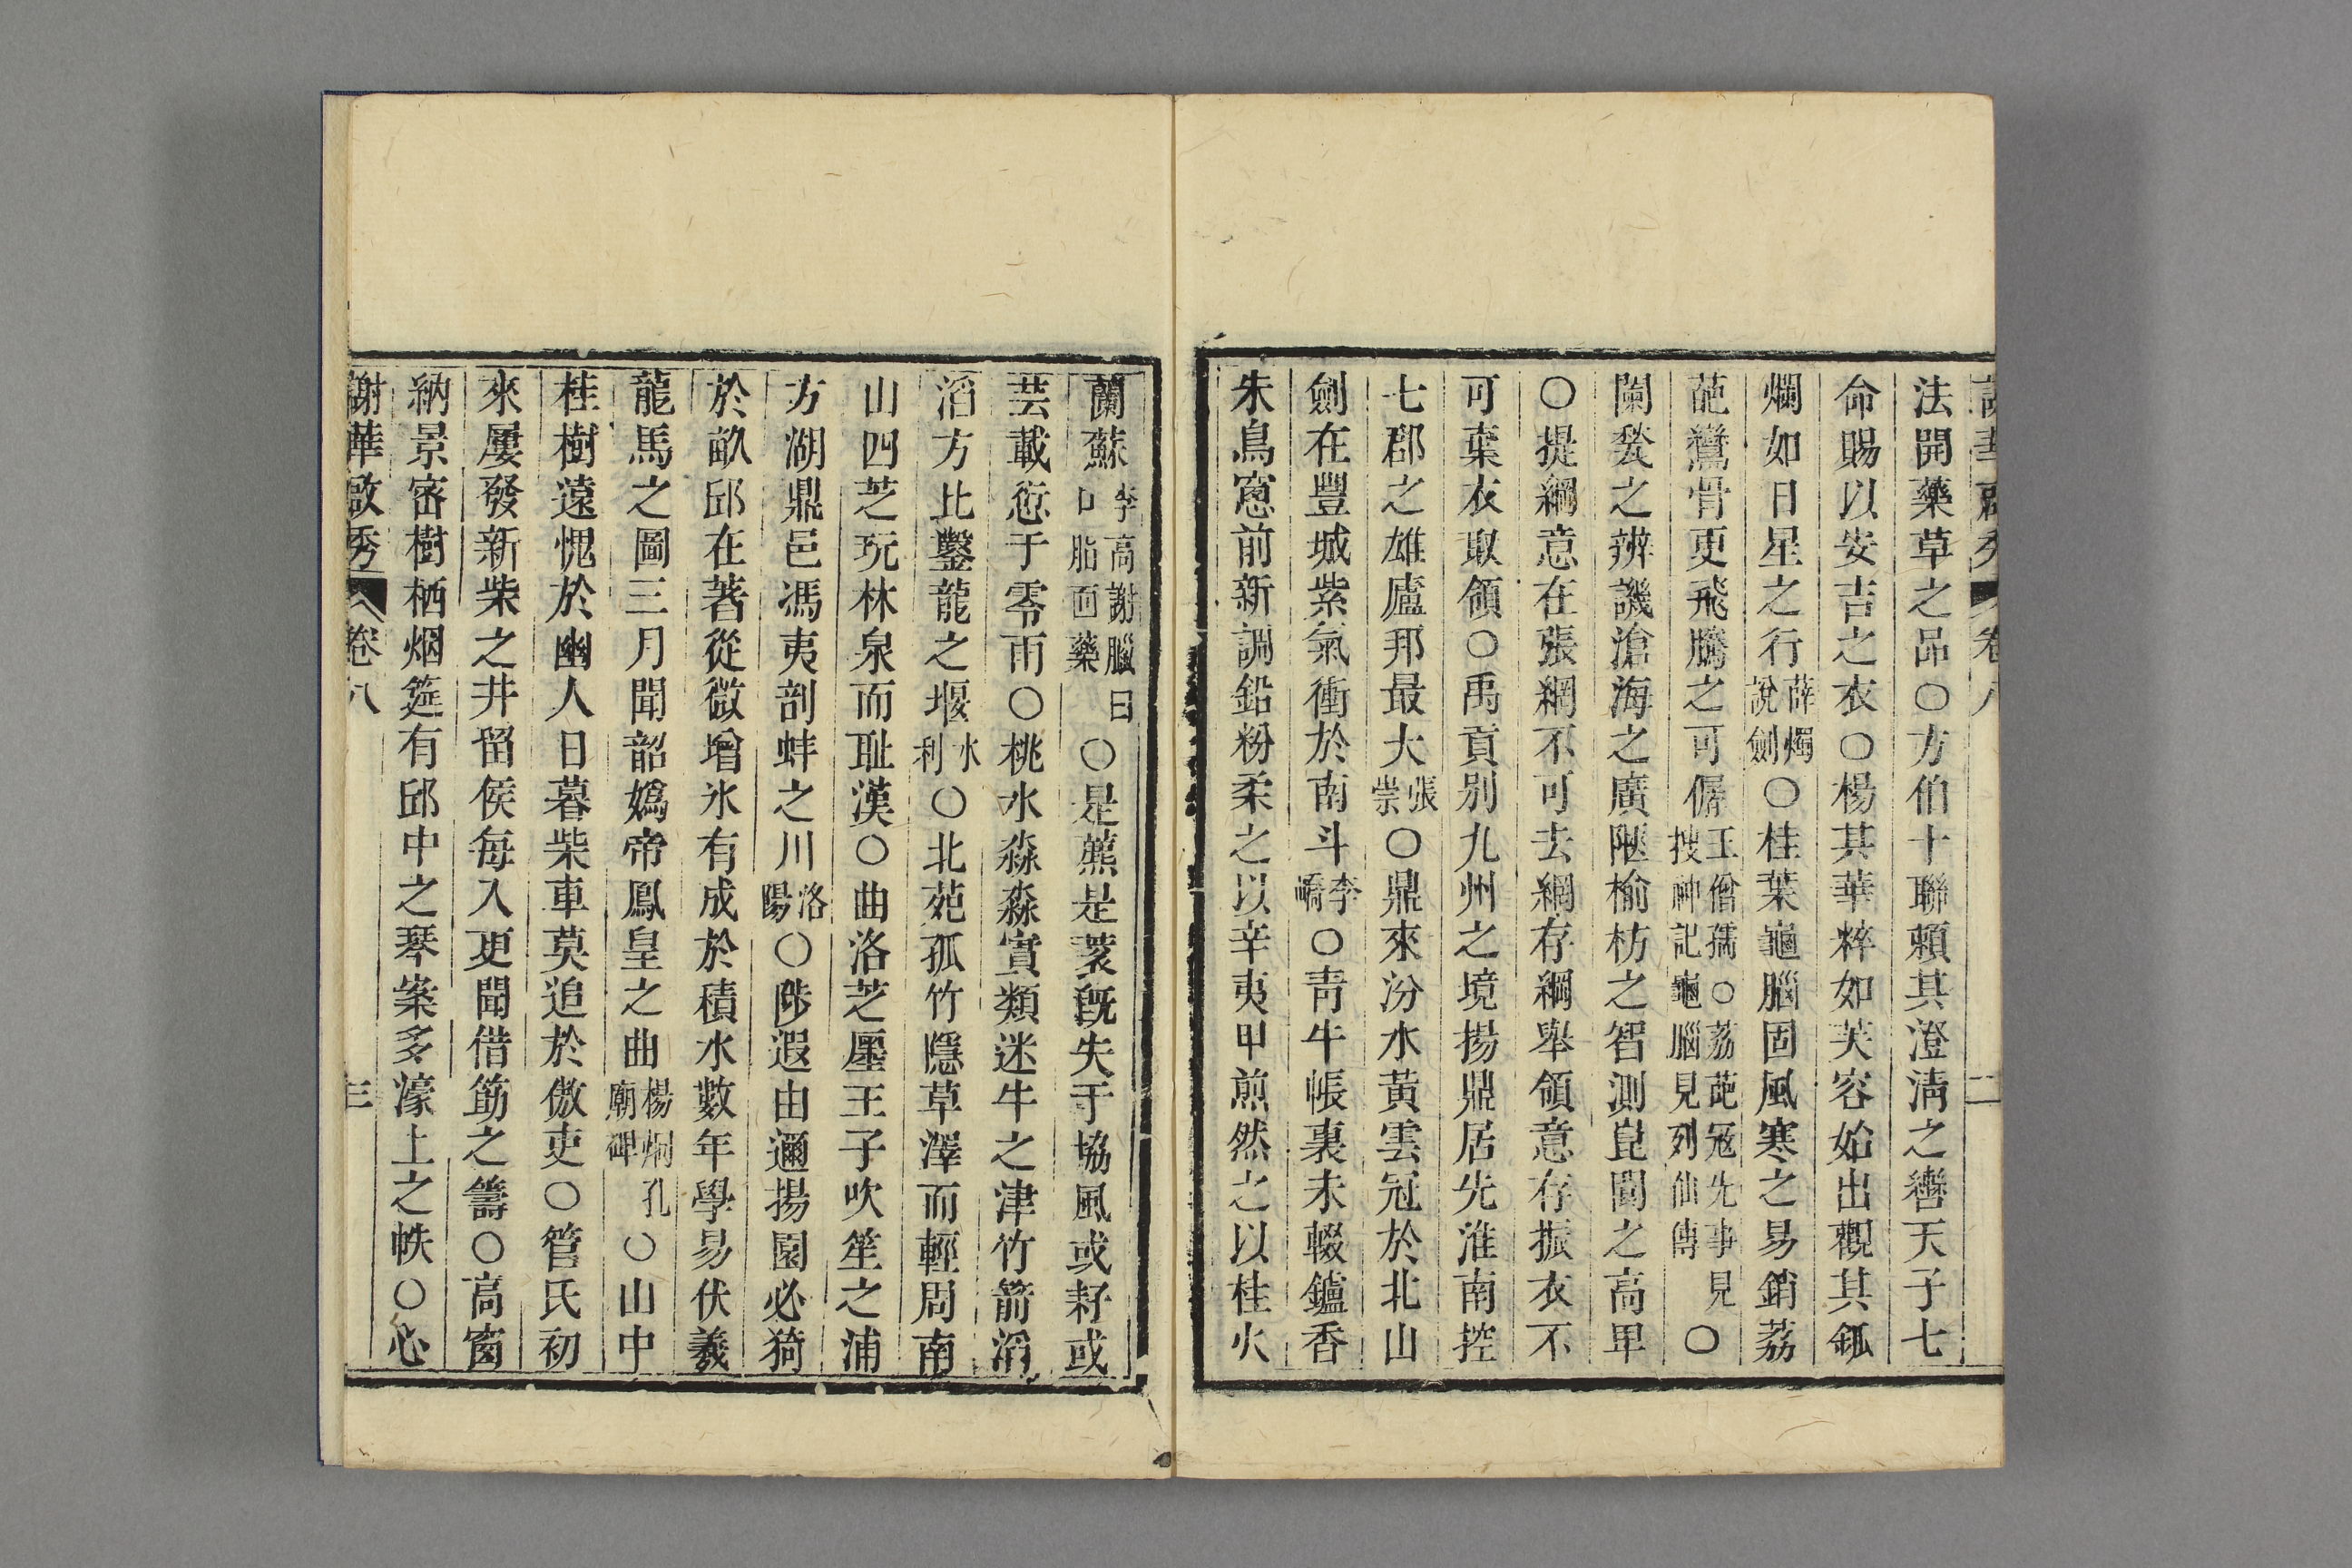 謝華啟秀 卷八 二
法開藥草之品○方伯十聯賴其澄清之轡天子七
命賜以安吉之衣○楊其華粹如芙容始出觀其鈲
爛如日星之行薛燭說劍○桂葉龜腦固風寒之易銷荔
葩鸞骨更飛騰之可僝王僧孺○荔葩冦先事見搜神記龜腦見列仙傳○
闌焂之辨譏滄海之廣陋榆枋之智測崑閬之高𤰞
○提綱意在張網不可去網存綱舉領意存振衣不
可棄衣取領○禹貢別九州之境揚鼎居先淮南控
七郡之雄廬邦最大張崇○鼎來汾水黃雲冠於北山
劍在豐城紫氣衝於南斗李嶠○靑牛帳裏未輟鑪香
朱鳥窻前新調鉛粉柔之以辛夷甲煎然之以桂火
蘭蘇李高謝臘日口脂面藥○是藨是蔉旣失于協風或耔或
芸載愆于零雨○桃水淼淼實類迷牛之津竹箭滔
滔方比鑿龍之堰水利○北苑孤竹隱草澤而輕周南
山四芝玩林泉而耻漢○曲洛芝壓王子吹笙之浦
方湖鼎邑馮夷剖蚌之川洛陽○陟遐由邇揚園必猗
於畝邱在著從微增氷有成於積水數年學易伏羲
龍馬之圖三月聞韶嬀帝鳳皇之曲楊烱孔廟碑○山中
桂樹遠愧於幽人日暮柴車莫追於傲吏○管氏初
來屢發新柴之井留侯每入更聞借筯之籌○高窗
納景密樹栖烟筵有邱中之琴案多濠上之帙○心
謝華啟秀 卷八 三